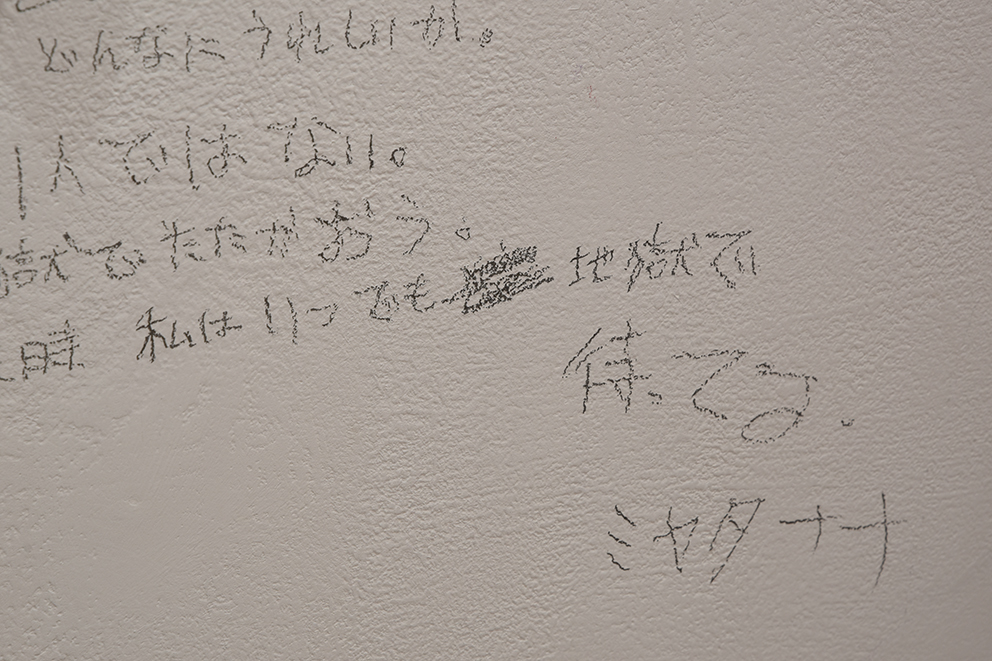 どんなにうれしいか。
1人ではない。
獄でたたかおう。
時 私はいつでも 地獄で
待ってる.
ミヤタ ナナ